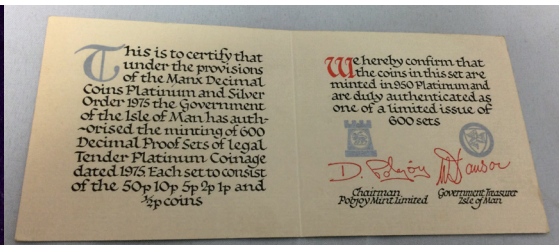 This is to certify that
under the provisions
of the Manx Decimal
Coins Platinum and Silver
Order 1975 the Government
of the Isle of Man has auth-
-orised the minting of 600
Decimal Proof Sets of legal
Tender Platinum Coinage
dated 1975 Each set to consist
of the 50p 10p 5p 2p 1p and
½p coins
We hereby confirm that
the coins in this set are
minted in 950 Platinum and
are duly authenticated as
one of a limited issue of
600 sets
D. Pobjoy
Chairman
Pobjoy Mint Limited
Government Treasurer
Isle of Man